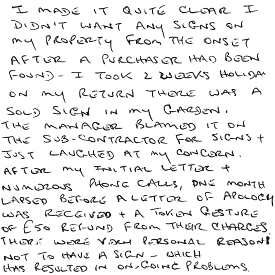 I MADE IT QUITE CLEAR I
DIDN'T WANT ANY SIGNS ON
MY PROPERTY FROM THE ONSET
AFTER A PURCHASER HAD BEEN
FOUND - I TOOK 2 WEEKS HOLIDA
ON MY RETURN THERE WAS A
SOLD SIGN IN MY GARDEN.
THE MANAGER BLAMED IT ON
THE SUB-CONTRACTOR FOR SIGNS +
JUST LAUGHED AT MY CONCERN.
AFTER MY INITIAL LETTER +
NUMEROUS PHONE CALLS, ONE MONTH
LAPSED BEFORE A LETTER OF APOLOGY
WAS RECEIVED + A TOKEN GESTURE
OF £50 REFUND FROM THEIR CHARGES.
THERE WERE VERY PERSONAL REASONS
NOT TO HAVE A SIGN - WHICH
HAS RESULTED IN ON-GOING PROBLEMS.